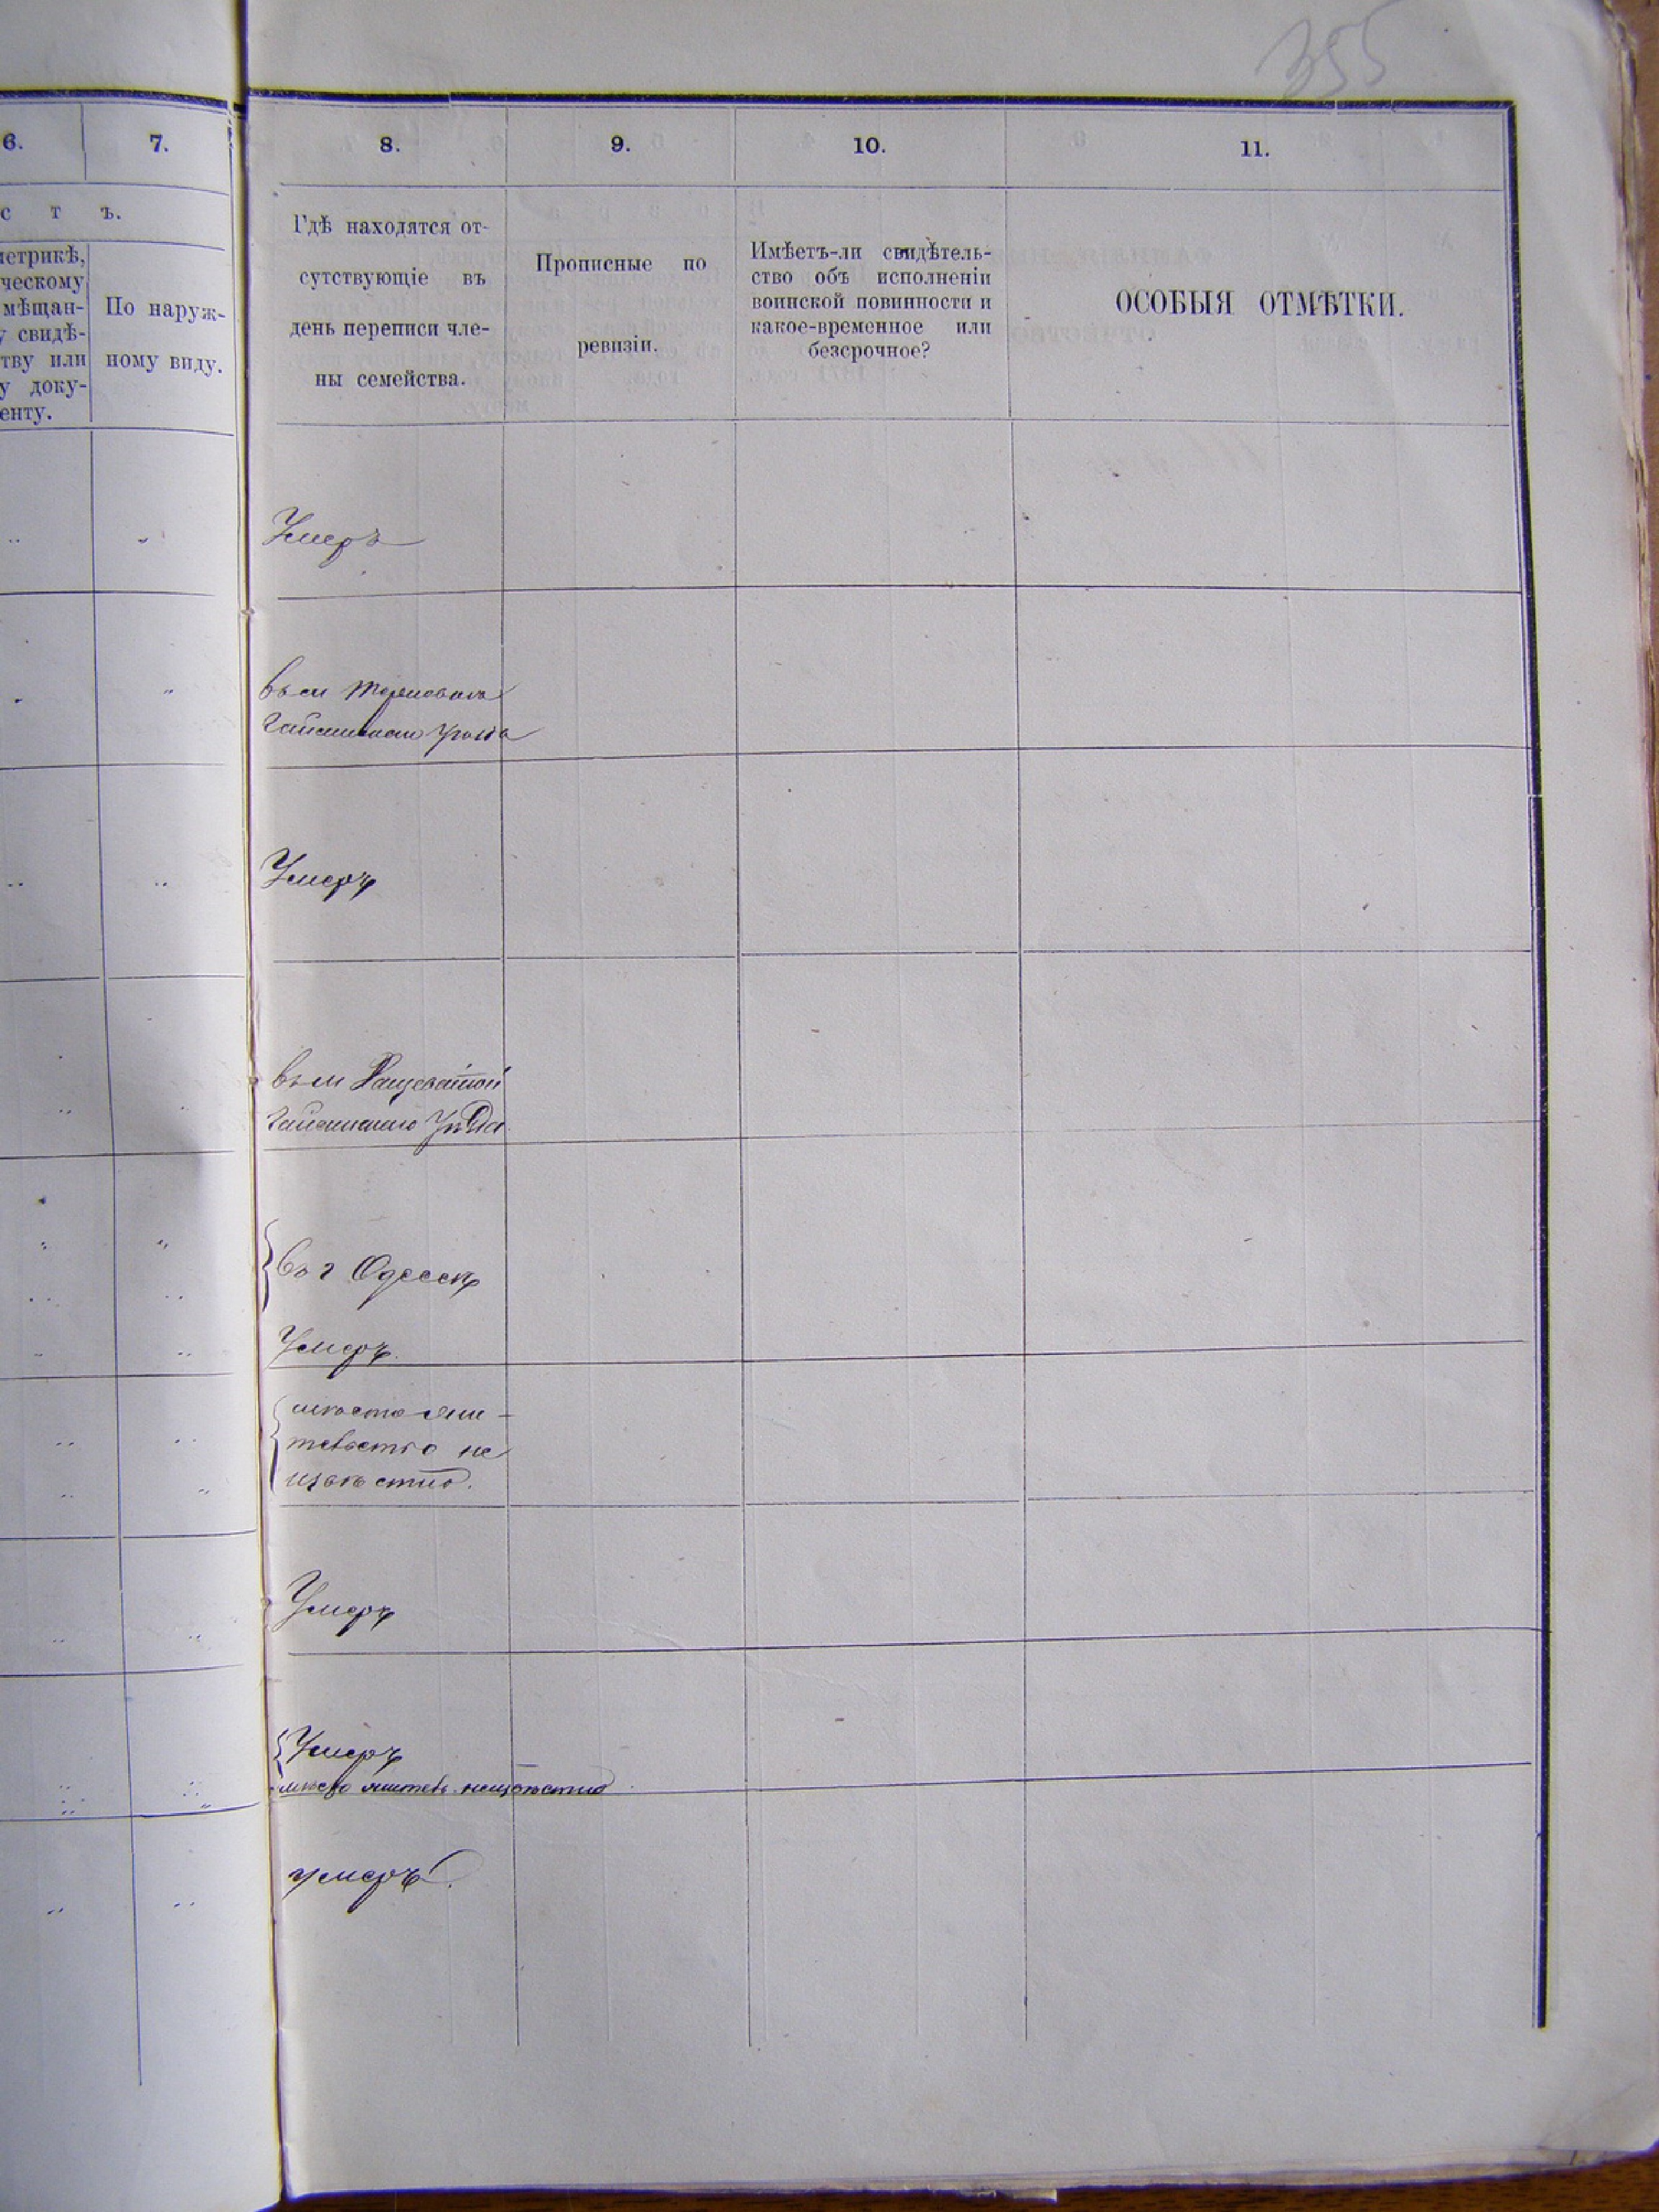 355
6.
7.
8.
9.
10.
11.
с т ъ.
етрикѣ,
ческому
мѣщан-
у свидѣ-
тву или
у доку-
енту.
По наруж-
ному виду.
Гдѣ находятся от-
сутствующіе въ
день переписи чле-
ны семейства.
Прописные по
ревизіи.
Имѣетъ-ли свидѣтель-
ство объ исполненіи
воинской повинности и
какое-временное или
безсрочное?
ОСОБЫЯ ОТМѢТКИ.
Умеръ
въ м
Гайсинскаго Уѣзда
Умеръ
въ м Хащеватой
Гайсинскаго Уѣзда
въ г Одессѣ
Умеръ.
мѣсто жи-
тельство не
извѣстно.
Умеръ
Умеръ
мѣсто жител. неизвѣстно
умеръ.